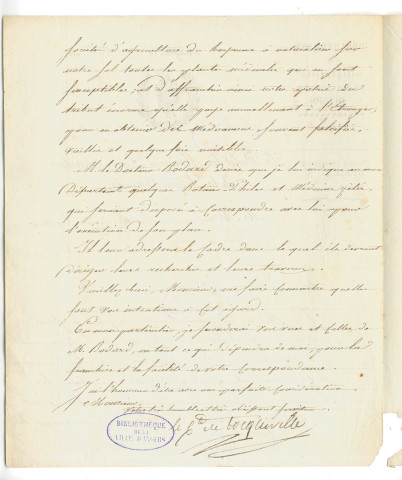 Société d'agriculture du royaume à naturaliser sur
notre sol toutes les plantes médicinales qui en sont
susceptibles, et d'affranchir ainsi notre patrie du
tribut énorme qu'elle paye annuellement à l'Étranger,
pour en obtenir des médicamens souvent falsifiés,
vieillis et quelque fois nuisibles.
M. le Docteur Bodard désire que je lui indique en mon
Département quelques Botanistes et Médecins zélés,
qui seraient disposés à correspondre avec lui pour
l'exécution de son plan.
Il leur adressera le cadre dans le quel ils devront
diriger leurs recherches et leurs travaux.
Veuillez bien, Monsieur, me faire connaître quelles
sont vos intentions à cet égard.
En mon particulier, je seconderai vos vues et celles de
M. Bodard, en tout ce qui dépendra de moi, pour la
franchise et la facilité de votre correspondance.
J'ai l'honneur d'être avec une parfaite considération
Monsieur,
Votre très humble et très obéissant serviteur
le Cte de Tocqueville
BIBLIOTHÈQUE
DE LA
VILLE D'AMIENS